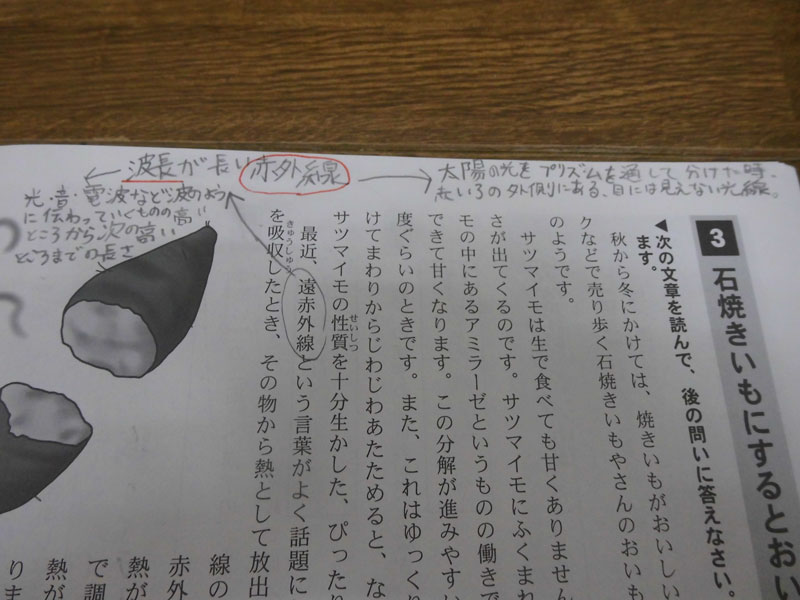 波長が長い赤外線
太陽の光をプリズムを通して分けた時、
赤いろの外側にある、目には見えない光線。
光・音・電波など波のよう
に伝わっていくものの高い
ところから次の高い
ところまでの長さ
3 石焼きいもにするとおい
次の文章を読んで、後の問いに答えなさい。
ます。
秋から冬にかけては、焼きいもがおいしい
クなどで売り歩く石焼きいもやさんのおいも
のようです。
サツマイモは生で食べても甘くありません
さが出てくるのです。サツマイモにふくまれ
モの中にあるアミラーゼというものの働きで
できて甘くなります。この分解が進みやすい
度ぐらいのときです。また、これはゆっくり
けてまわりからじわじわあたためると、な
サツマイモの性質を十分生かした、ぴったり
せいしつ
最近、遠赤外線という言葉がよく話題に
を吸収したとき、その物から熱として放出
きゅうしゅう
線の
赤外
熱が
で調
熱が
りま